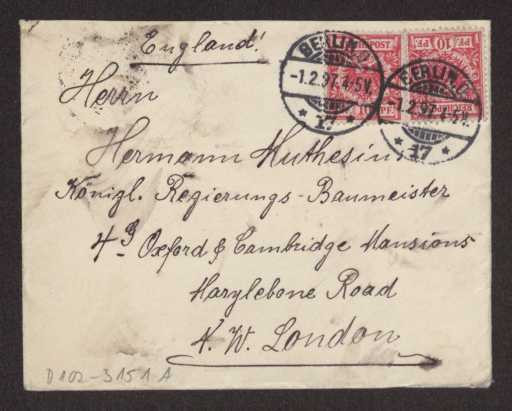 England!
BERLIN.
-1.2.97.4/5N.
* 17 *
REICHSPOST
10 PF.
BERLIN.
-1.2.97.4/5N.
* 17 *
PF. 10
Herrn
Hermann Muthesius,
Königl. Regierungs-Baumeister
Oxford & Cambridge Mansions
Marylebone Road
N. W. London
D 102-3151 A